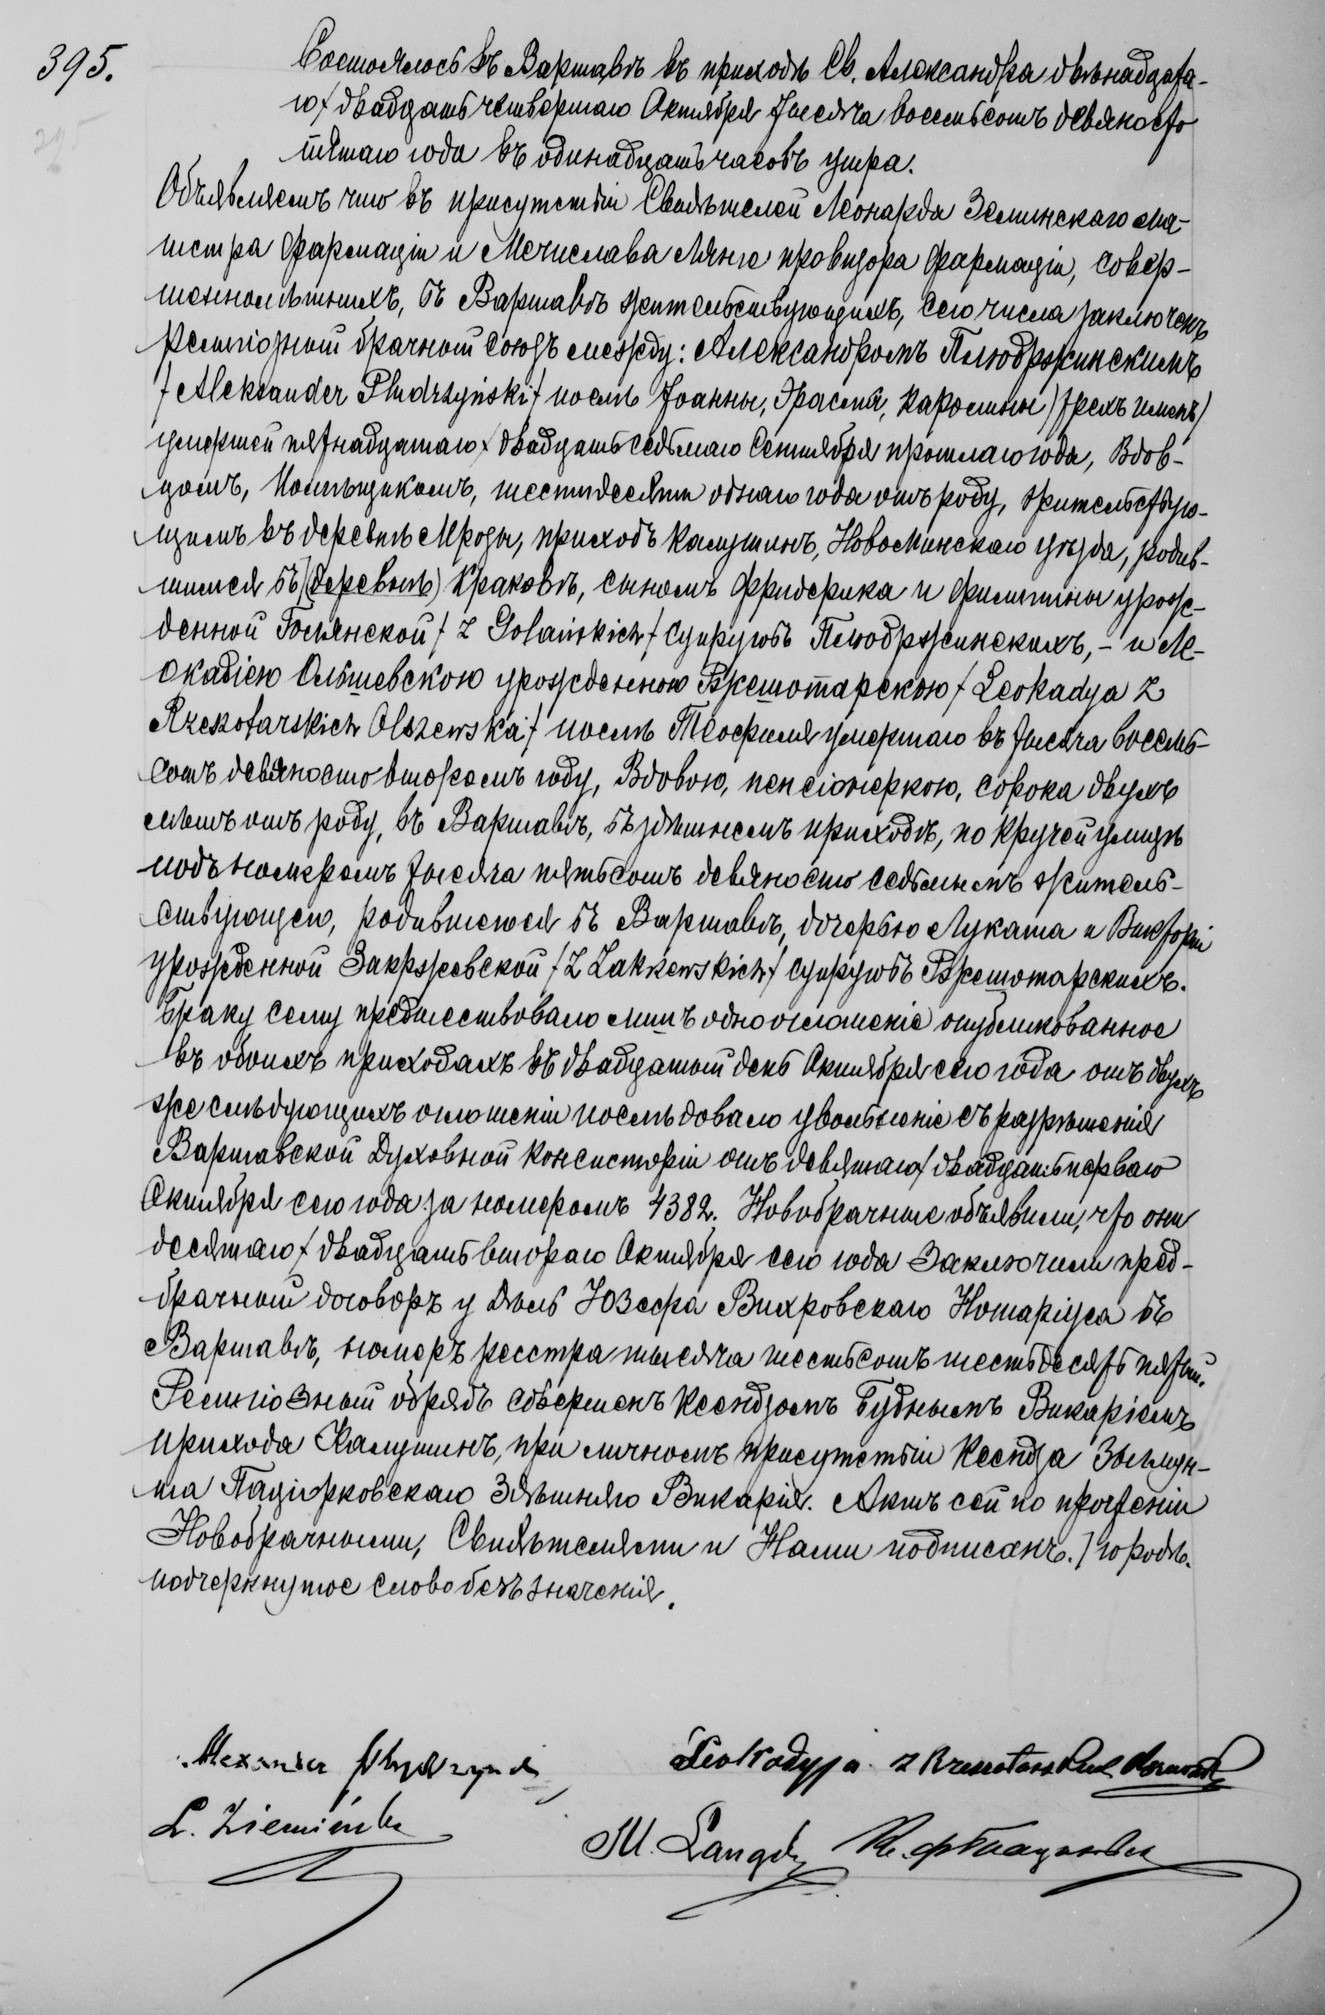 395.
Состоялось въ Варшавѣ въ приходѣ Св. Александра двѣнадцата-
го/двадцать четвертаго Октября тысяча восемьсотъ девяносто
пятаго года въ одинадцать часовъ утра.
Объявляемъ что въ присутствіи Свидѣтелей Леонарда Зелинскаго ма-
гистра фармаціи и Мечислава Лянге провизора фармаціи, совер-
шеннолѣтнихъ, въ Варшавѣ жительствующихъ, сего числа заключенъ
религіозный брачный союзъ между: Александромъ Плюдржинскимъ
/Aleksander Pludrzyński/ послѣ Іоанны, Эрасмы, Каролины) трехъ именъ)
умершей пятнадцатаго/двадцать седьмаго Сентября прошлаго года, Вдов-
цомъ, Помѣщикомъ, шестидесяти однаго года отъ роду, жительствую-
щимъ въ деревнѣ Мрозы, приходъ Калушинъ, Новоминскаго уѣзда, родив-
шимся въ (деревнѣ) Краковѣ, сыномъ Фридерика и Филипины урож-
денной Голянской/z Golańskich/супруговъ Плюдржинскихъ, – и Ле-
окадіею Ольшевскою урожденною Ржешотарскою/Leokadya z
Rzeszotarskich Olszewska/ послѣ Теофиля умершаго въ тысяча восемь-
сотъ девяносто второмъ году, Вдовою, пенсіонеркою, сорока двухъ
лѣтъ отъ роду, въ Варшавѣ, въ здѣшнемъ приходѣ, по Кручей улицѣ
подъ номеромъ тысяча пятьсотъ девяносто седьмымъ житель-
ствующею, родившеюся въ Варшавѣ, дочерью Лукаша и Викторіи
урожденной Закржевской /z Zakrzewskich/ супруговъ Ржешотарскихъ.
Браку сему предшествовало лишъ одно оглашеніе опубликованное
въ обоихъ приходахъ въ двадцатый день Октября сего года отъ двухъ
же слѣдующихъ оглашеній послѣдовало увольненіе съ разрѣшенія
Варшавской Духовной Консисторіи отъ девятаго/двадцать перваго
Октября сего года за номеромъ 4382. Новобрачные объявили, что они
десятаго/двадцать втораго Октября сего года Заключили пред-
брачный договоръ у Дѣль Юзефа Вихровскаго Нотаріуса въ
Варшавѣ, номеръ реестра тысяча шестьсотъ шестьдесятъ пятый.
Религіозный обрядъ совершенъ Ксендзомъ Буднымъ Викаріемъ
прихода Калушинъ, при личномъ присутствіи Ксендза Зыгмун-
та Пацiорковскаго Здѣшняго Викарія. Актъ сей по прочтеніи
Новобрачными, Свидѣтелями и Нами подписанъ./городѣ.
подчеркнутое слово безъ значенія.
Alexander
Leokadyja z
L. Zieliński
M. Lange